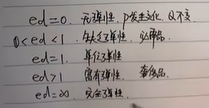 ed=0. 无弹性. P发生变化 Q不变
0<ed<1. 缺乏弹性. 必需品
ed=1. 单位弹性
ed>1 富有弹性. 奢侈品
ed=∞ 完全弹性.